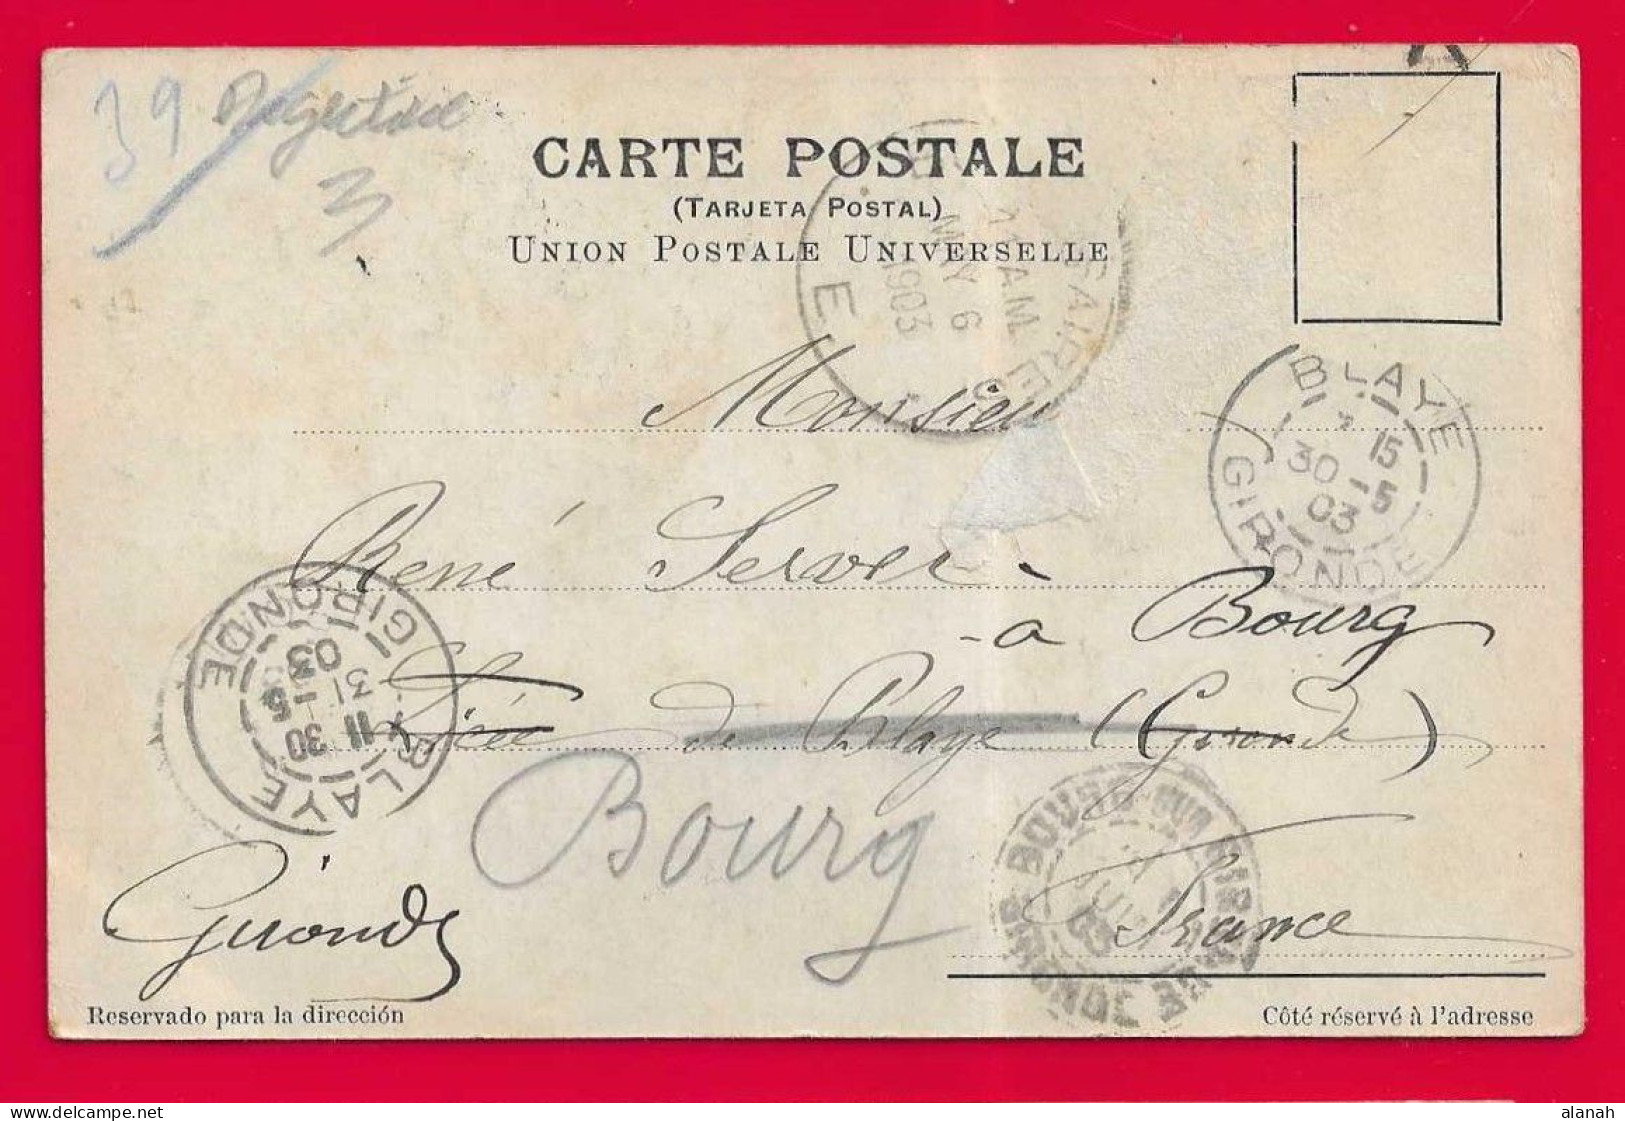 39 Argentine
3
CARTE POSTALE
(TARJETA POSTAL)
UNION POSTALE UNIVERSELLE
AIRES
11 AM
MAY 6
1903
E
Monsieur
BLAYE
15
30 - 5
03
GIRONDE
René Server
à Bourg
Lycée de Blaye (Gironde)
GIRONDE
03
31 - 5
11 30
BLAYE
Bourg
BOURG-SUR-GIRONDE
GIRONDE
France
Gironde
Reservado para la dirección
Côté réservé à l'adresse
alanah
delcampe.net